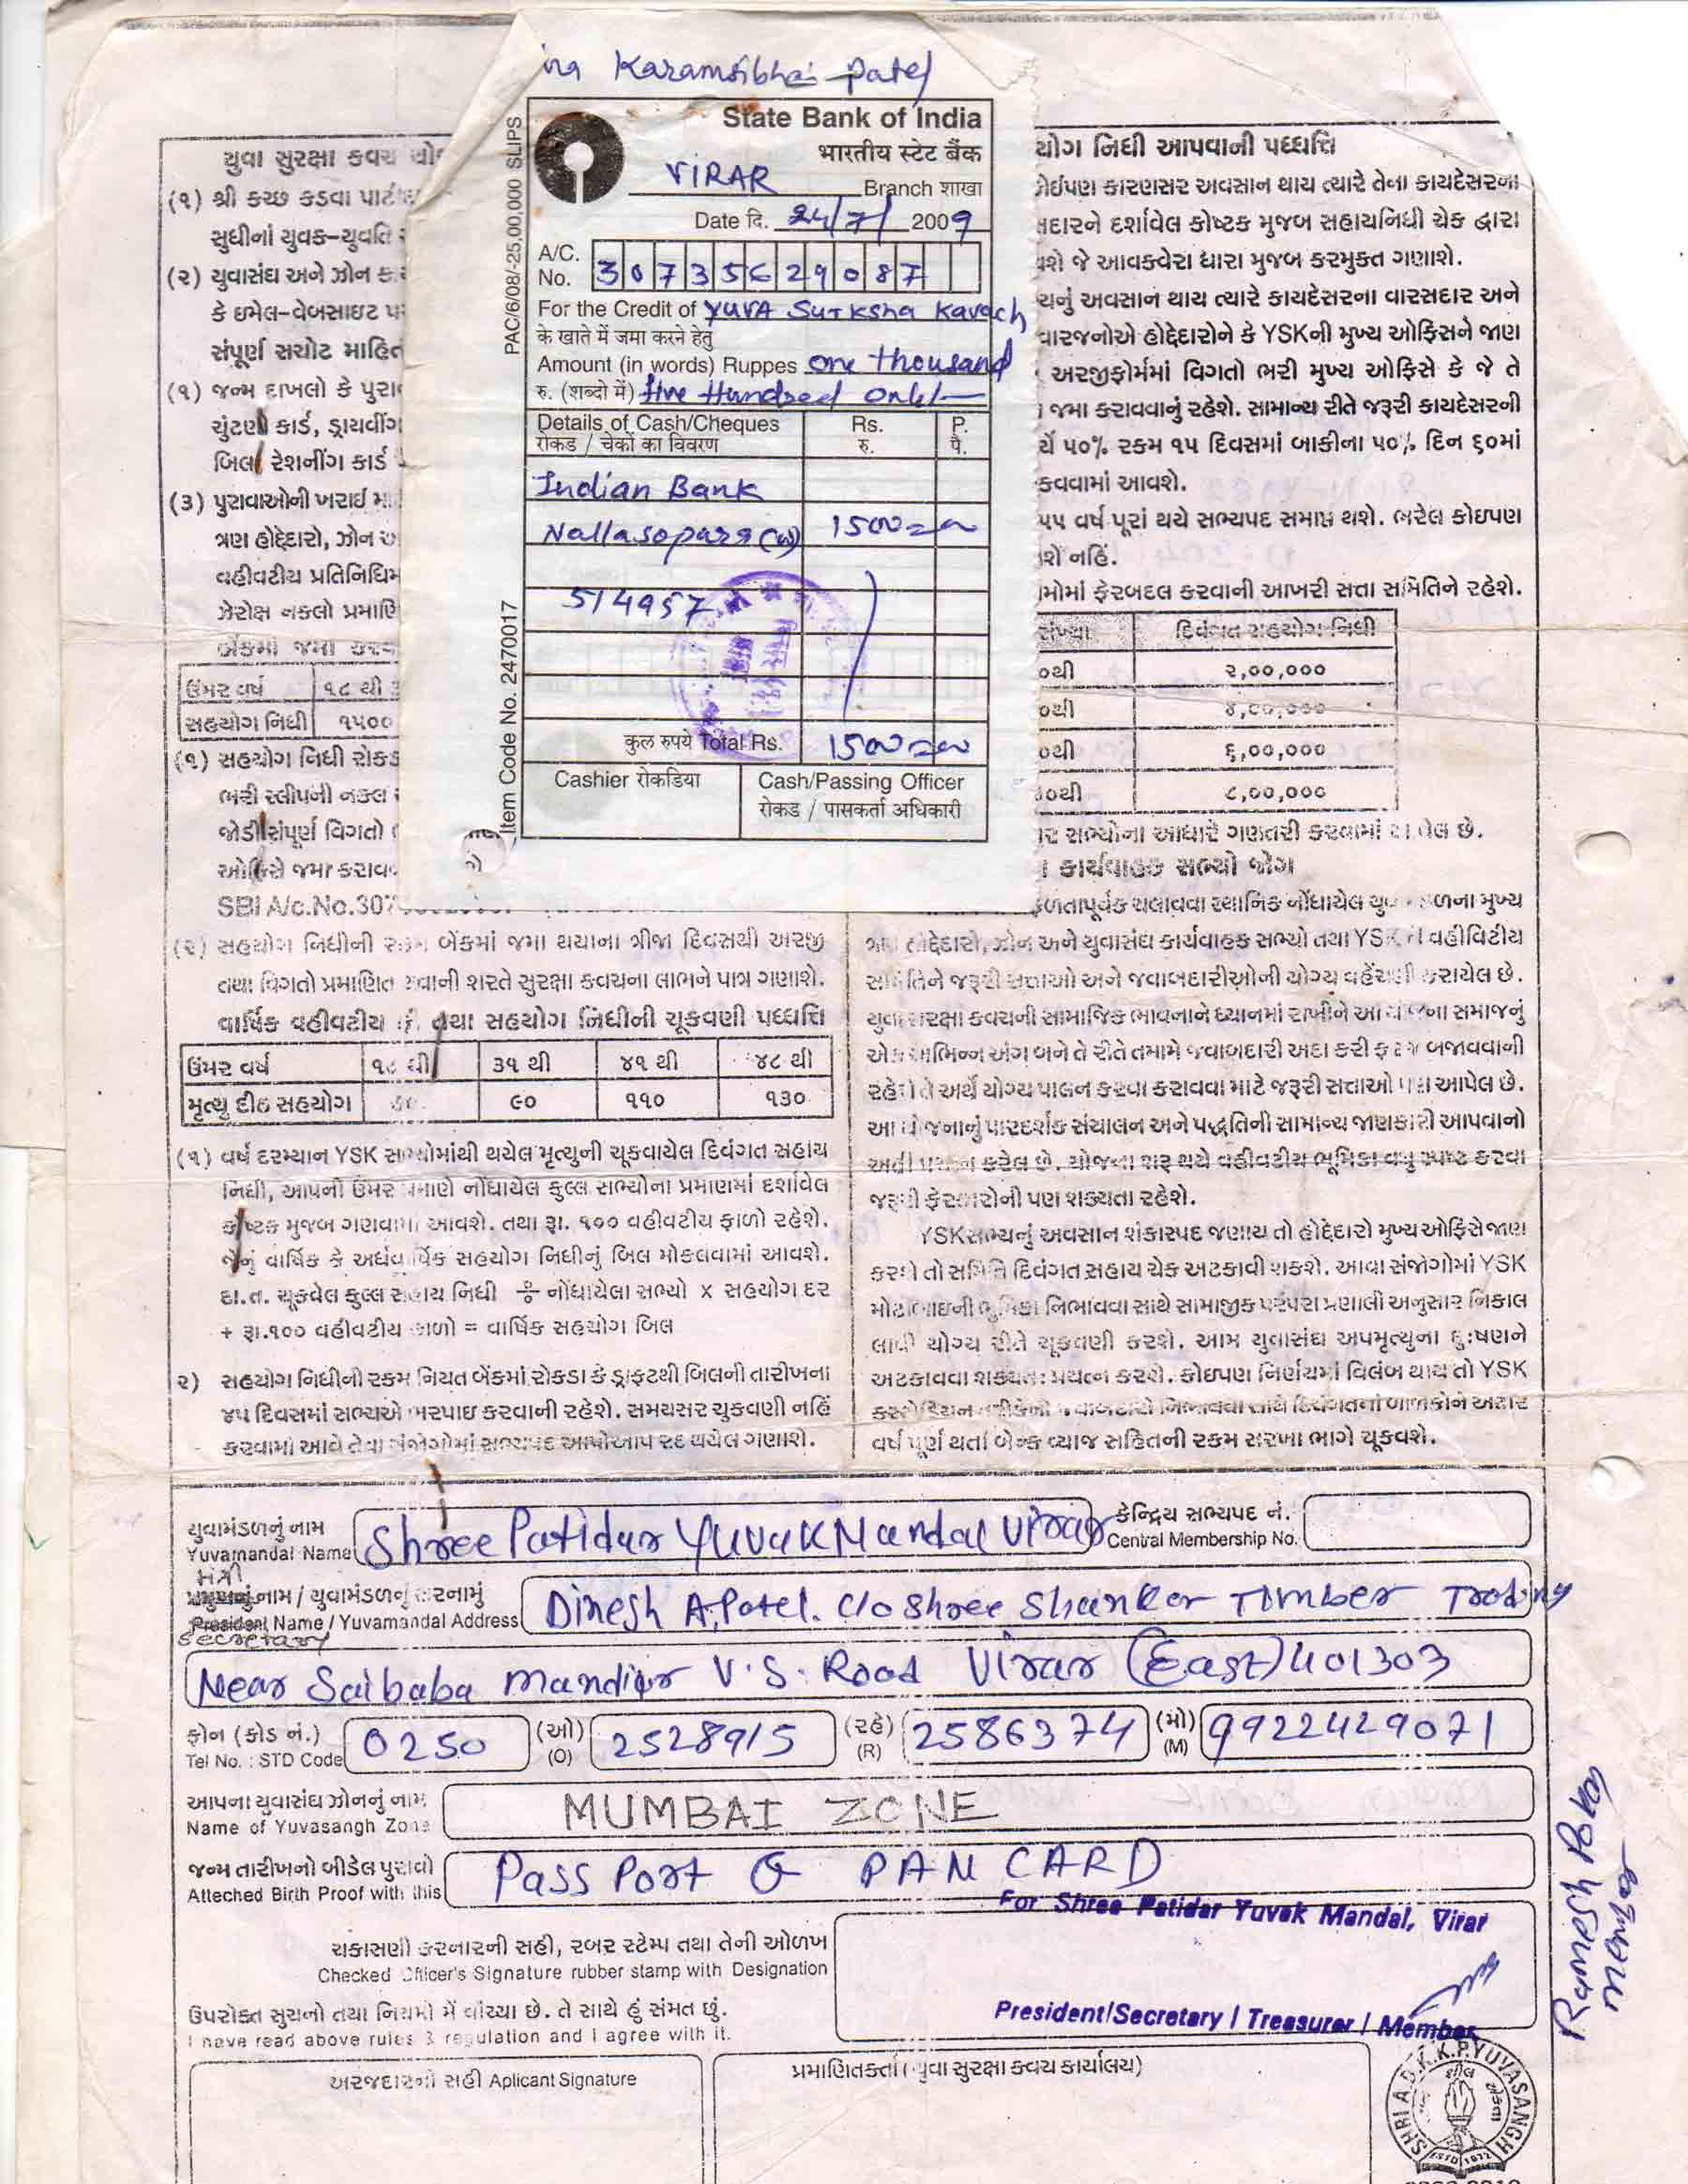 Karamsibhai Patel
State Bank of India
भारतीय स्टेट बैंक
VIRAR Branch शाखा
Date दि. 24/7/ 2009
A/C. No. 30735629087
For the Credit of YUVA Surksha Kavach
के खाते में जमा करने हेतु
Amount (in words) Ruppes one thousand
रु. (शब्दो में) five Hundred Only/-
Details of Cash/Cheques Rs. P.
रोकड / चेकों का विवरण रु. पै.
Indian Bank
Nallasopara (w) 1500=00
514957
कुल रुपये Total Rs. 1500=00
Cashier रोकडिया Cash/Passing Officer
रोकड / पासकर्ता अधिकारी
PAC/6/08/-25,00,000 SLIPS
Item Code No. 2470017
યુવા સુરક્ષા કવચ
(૧) શ્રી કચ્છ કડવા
સુધીનાં યુવક-યુવતિ
(૨) યુવાસંઘ અને ઝોન
કે ઇમેલ-વેબસાઇટ
સંપૂર્ણ સચોટ
(૧) જન્મ દાખલો કે
ચુંટણી કાર્ડ, ડ્રાયવીંગ
બિલ/ રેશનીંગ કાર્ડ
(૩) પુરાવાઓની ખરાઈ
ત્રણ હોદ્દેદારો, ઝોન
વહીવટીય
ઝેરોક્ષ નકલો
બેંકમાં જમા
ઉંમર વર્ષ ૧૮ થી
સહયોગ નિધી ૧૫૦૦
(૧) સહયોગ નિધી
ભરી સ્લીપની નકલ
જોડી સંપૂર્ણ વિગતો
ઓફિસે જમા
SBI A/c.No.307
(૨) સહયોગ નિધીની રકમ બેંકમાં જમા થયાના ત્રીજા દિવસથી અરજી
તથા વિગતો પ્રમાણિત થવાની શરતે સુરક્ષા કવચના લાભને પાત્ર ગણાશે.
વાર્ષિક વહીવટીય ફી તથા સહયોગ નિધીની ચૂકવણી પધ્ધત્તિ
ઉંમર વર્ષ ૧૮ થી ૩૧ થી ૪૧ થી ૪૮ થી
મૃત્યુ દીઠ સહયોગ ૯૦ ૧૧૦ ૧૩૦
(૧) વર્ષ દરમ્યાન YSK સભ્યોમાંથી થયેલ મૃત્યુની ચૂકવાયેલ દિવંગત સહાય
નિધી, આપની ઉંમર પ્રમાણે નોંધાયેલ કુલ્લ સભ્યોના પ્રમાણમાં દર્શાવેલ
કોષ્ટક મુજબ ગણવામાં આવશે. તથા રૂા. ૧૦૦ વહીવટીય ફાળો રહેશે.
જેનું વાર્ષિક કે અર્ધવાર્ષિક સહયોગ નિધીનું બિલ મોકલવામાં આવશે.
દા.ત. ચૂકવેલ કુલ્લ સહાય નિધી ÷ નોંધાયેલા સભ્યો x સહયોગ દર
+ રૂા.૧૦૦ વહીવટીય ફાળો = વાર્ષિક સહયોગ બિલ
૨) સહયોગ નિધીની રકમ નિયત બેંકમાં રોકડા કે ડ્રાફટથી બિલની તારીખના
૪૫ દિવસમાં સભ્યએ ભરપાઇ કરવાની રહેશે. સમયસર ચુકવણી નહિં
કરવામાં આવે તેવા સંજોગોમાં સભ્યપદ આપોઆપ રદ થયેલ ગણાશે.
યોગ નિધી આપવાની પધ્ધત્તિ
કોઇપણ કારણસર અવસાન થાય ત્યારે તેના કાયદેસરના
દારને દર્શાવેલ કોષ્ટક મુજબ સહાયનિધી ચેક દ્વારા
શે જે આવકવેરા ધારા મુજબ કરમુક્ત ગણાશે.
યનું અવસાન થાય ત્યારે કાયદેસરના વારસદાર અને
વારજનોએ હોદ્દેદારોને કે YSKની મુખ્ય ઓફિસને જાણ
અરજીફોર્મમાં વિગતો ભરી મુખ્ય ઓફિસે કે જે તે
જમા કરાવવાનું રહેશે. સામાન્ય રીતે જરૂરી કાયદેસરની
૫૦% રકમ ૧૫ દિવસમાં બાકીના ૫૦% દિન ૬૦માં
કવવામાં આવશે.
૫૫ વર્ષ પૂરાં થયે સભ્યપદ સમાપ્ત થશે. ભરેલ કોઇપણ
શે નહિં.
મોમાં ફેરબદલ કરવાની આખરી સત્તા સમિતિને રહેશે.
સંખ્યા દિવંગત સહયોગ નિધી
૦થી ૨,૦૦,૦૦૦
૦થી ૪,૦૦,૦૦૦
૦થી ૬,૦૦,૦૦૦
૦થી ૮,૦૦,૦૦૦
સભ્યોના આધારે ગણતરી કરવામાં આવેલ છે.
કાર્યવાહક સભ્યો જોગ
ળતાપૂર્વક ચલાવવા સ્થાનિક નોંધાયેલ મુખ્ય
ત્રણ હોદ્દેદારો, ઝોન અને યુવાસંઘ કાર્યવાહક સભ્યો તથા YSK ની વહીવિટીય
સમિતિને જરૂરી સત્તાઓ અને જવાબદારીઓની યોગ્ય વહેંચણી કરાયેલ છે.
યુવા સુરક્ષા કવચની સામાજિક ભાવનાને ધ્યાનમાં રાખીને આ યોજના સમાજનું
એક અભિન્ન અંગ બને તે રીતે તમામે જવાબદારી અદા કરી ફરજ બજાવવાની
રહેશે તે અર્થે યોગ્ય પાલન કરવા કરાવવા માટે જરૂરી સત્તાઓ પણ આપેલ છે.
આ યોજનાનું પારદર્શક સંચાલન અને પદ્ધતિની સામાન્ય જાણકારી આપવાનો
અહીં પ્રયત્ન કરેલ છે. યોજના શરૂ થયે વહીવટીય ભૂમિકા વધુ સ્પષ્ટ કરવા
જરૂરી ફેરફારોની પણ શક્યતા રહેશે.
YSKસભ્યનું અવસાન શંકાસ્પદ જણાય તો હોદ્દેદારો મુખ્ય ઓફિસે જાણ
કરશે તો સમિતિ દિવંગત સહાય ચેક અટકાવી શકશે. આવા સંજોગોમાં YSK
મોટાભાઇની ભુમિકા નિભાવવા સાથે સામાજીક પરંપરા પ્રણાલી અનુસાર નિકાલ
લાવી યોગ્ય રીતે ચૂકવણી કરશે. આમ યુવાસંઘ અપમૃત્યુના દુઃષણને
અટકાવવા શક્યતઃ પ્રયત્ન કરશે. કોઇપણ નિર્ણયમાં વિલંબ થાય તો YSK
કસ્ટોડિયન તરીકેની જવાબદારી નિભાવવા સાથે દિવંગતનાં બાળકોને અઢાર
વર્ષ પૂર્ણ થતાં બેન્ક વ્યાજ સહિતની રકમ સરખા ભાગે ચૂકવશે.
યુવામંડળનું નામ કેન્દ્રિય સભ્યપદ નં.
Yuvamandal Name Shree Patidar Yuvak Mandal Virar Central Membership No.
મંત્રી
પ્રમુખનું નામ / યુવામંડળનું સરનામું
President Name / Yuvamandal Address Dinesh A. Patel. C/o Shree Shanker Timber Trading
Secretary
Near Saibaba Mandir V.S. Road Virar (East) 401303
ફોન (કોડ નં.) (ઓ) (રહે) (મો)
Tel No. : STD Code 0250 (O) 2528915 (R) 2586374 (M) 9922429071
આપના યુવાસંઘ ઝોનનું નામ
Name of Yuvasangh Zone MUMBAI ZONE
જન્મ તારીખનો બીડેલ પુરાવો
Atteched Birth Proof with this Pass Port & PAN CARD
For Shree Patidar Yuvak Mandal, Virar
ચકાસણી કરનારની સહી, રબર સ્ટેમ્પ તથા તેની ઓળખ
Checked Officer's Signature rubber stamp with Designation
President/Secretary / Treasurer / Member
ઉપરોક્ત સુચનો તથા નિયમો મેં વાંચ્યા છે. તે સાથે હું સંમત છું.
I have read above rules & regulation and I agree with it.
Ramesh Pokar
Member
અરજદારની સહી Aplicant Signature
પ્રમાણિતકર્તા (યુવા સુરક્ષા કવચ કાર્યાલય)
SHRI A.B.K.K.P. YUVASANGH
ESTD 1972